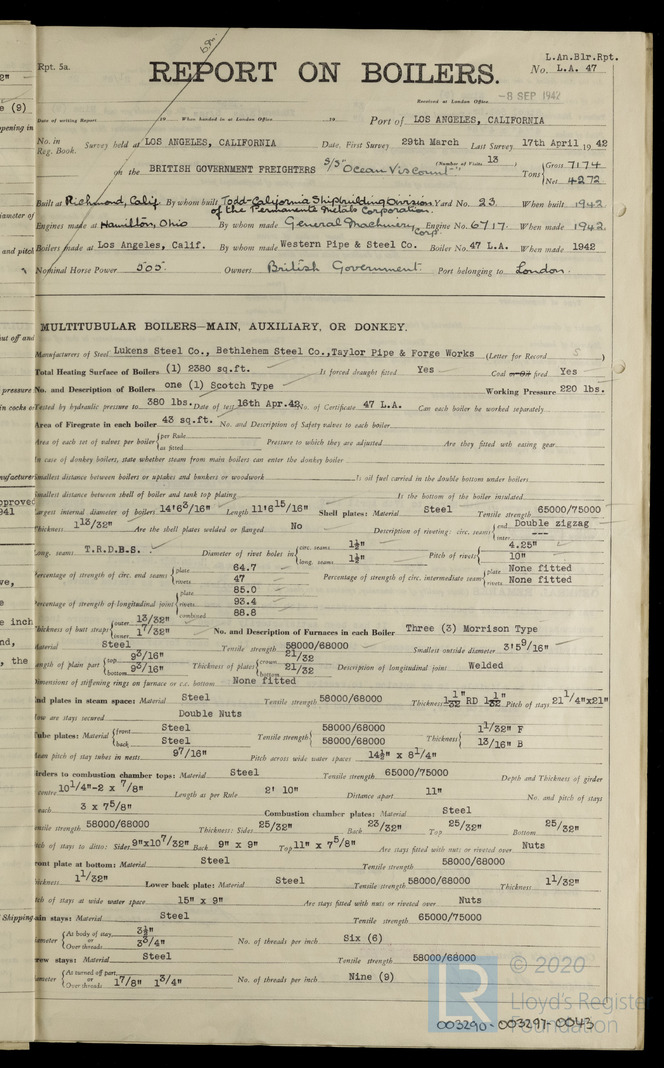 L.An.Blr.Rpt.
Rpt. 5a.
REPORT ON BOILERS.
No. L.A. 47
Received at London Office -8 SEP 1942
Date of writing Report 19 When handed in at London Office 19 Port of LOS ANGELES, CALIFORNIA
No. in Reg. Book. Survey held at LOS ANGELES, CALIFORNIA Date, First Survey 29th March Last Survey 17th April 1942
(Number of Visits 13)
on the BRITISH GOVERNMENT FREIGHTERS S/S "Ocean Viscount" Tons {Gross 7174 Net 4272
Built at Richmond, Calif By whom built Todd-California Shipbuilding Division of the Permanente Metals Corporation. Yard No. 23 When built 1942
Engines made at Hamilton, Ohio By whom made General Machinery Corp. Engine No. 6717 When made 1942
Boilers made at Los Angeles, Calif. By whom made Western Pipe & Steel Co. Boiler No. 47 L.A. When made 1942
Nominal Horse Power 505 Owners British Government Port belonging to London.
MULTITUBULAR BOILERS—MAIN, AUXILIARY, OR DONKEY.
Manufacturers of Steel Lukens Steel Co., Bethlehem Steel Co., Taylor Pipe & Forge Works (Letter for Record S)
Total Heating Surface of Boilers (1) 2380 sq.ft. Is forced draught fitted Yes Coal or Oil fired Yes
No. and Description of Boilers one (1) Scotch Type Working Pressure 220 lbs.
Tested by hydraulic pressure to 380 lbs. Date of test 16th Apr.42 No. of Certificate 47 L.A. Can each boiler be worked separately
Area of Firegrate in each boiler 43 sq.ft. No. and Description of Safety valves to each boiler
Area of each set of valves per boiler {per Rule as fitted Pressure to which they are adjusted Are they fitted with easing gear
In case of donkey boilers, state whether steam from main boilers can enter the donkey boiler
Smallest distance between boilers or uptakes and bunkers or woodwork Is oil fuel carried in the double bottom under boilers
Smallest distance between shell of boiler and tank top plating Is the bottom of the boiler insulated
Largest internal diameter of boilers 14'6 3/16" Length 11'6 15/16" Shell plates: Material Steel Tensile strength 65000/75000
Thickness 1 13/32" Are the shell plates welded or flanged No Description of riveting: circ. seams {end Double zigzag inter. ---
Long. seams T.R.D.B.S. Diameter of rivet holes in {circ. seams 1½" long. seams 1½" Pitch of rivets {4.25" 10"
Percentage of strength of circ. end seams {plate 64.7 rivets 47 Percentage of strength of circ. intermediate seam {plate None fitted rivets None fitted
Percentage of strength of longitudinal joint {plate 85.0 rivets 93.4 combined 88.8
Thickness of butt straps {outer 13/32" inner 1 7/32" No. and Description of Furnaces in each Boiler Three (3) Morrison Type
Material Steel Tensile strength 58000/68000 Smallest outside diameter 3'5 9/16"
Length of plain part {top 9 3/16" bottom 9 3/16" Thickness of plates {crown 21/32 bottom 21/32 Description of longitudinal joint Welded
Dimensions of stiffening rings on furnace or c.c. bottom None fitted
End plates in steam space: Material Steel Tensile strength 58000/68000 Thickness 1 1/32" RD 1 1/32" Pitch of stays 21 1/4"x21"
How are stays secured Double Nuts
Tube plates: Material {front Steel back Steel Tensile strength {58000/68000 58000/68000 Thickness {1 1/32" F 13/16" B
Mean pitch of stay tubes in nests 9 7/16" Pitch across wide water spaces 14½" x 8 1/4"
Girders to combustion chamber tops: Material Steel Tensile strength 65000/75000 Depth and Thickness of girder
centre 10 1/4"-2 x 7/8" Length as per Rule 2' 10" Distance apart 11" No. and pitch of stays
each 3 x 7 5/8" Combustion chamber plates: Material Steel
Tensile strength 58000/68000 Thickness: Sides 25/32" Back 23/32" Top 25/32" Bottom 25/32"
Pitch of stays to ditto: Sides 9"x10 7/32" Back 9" x 9" Top 11" x 7 5/8" Are stays fitted with nuts or riveted over Nuts
Front plate at bottom: Material Steel Tensile strength 58000/68000
Thickness 1 1/32" Lower back plate: Material Steel Tensile strength 58000/68000 Thickness 1 1/32"
Pitch of stays at wide water space 15" x 9" Are stays fitted with nuts or riveted over Nuts
Main stays: Material Steel Tensile strength 65000/75000
Diameter {At body of stay, or Over threads 3½" 3 3/4" No. of threads per inch Six (6)
Screw stays: Material Steel Tensile strength 58000/68000
Diameter {At turned off part, or Over threads 1 7/8" 1 3/4" No. of threads per inch Nine (9)
© 2020
Lloyd's Register
Foundation
003290-003297-0043